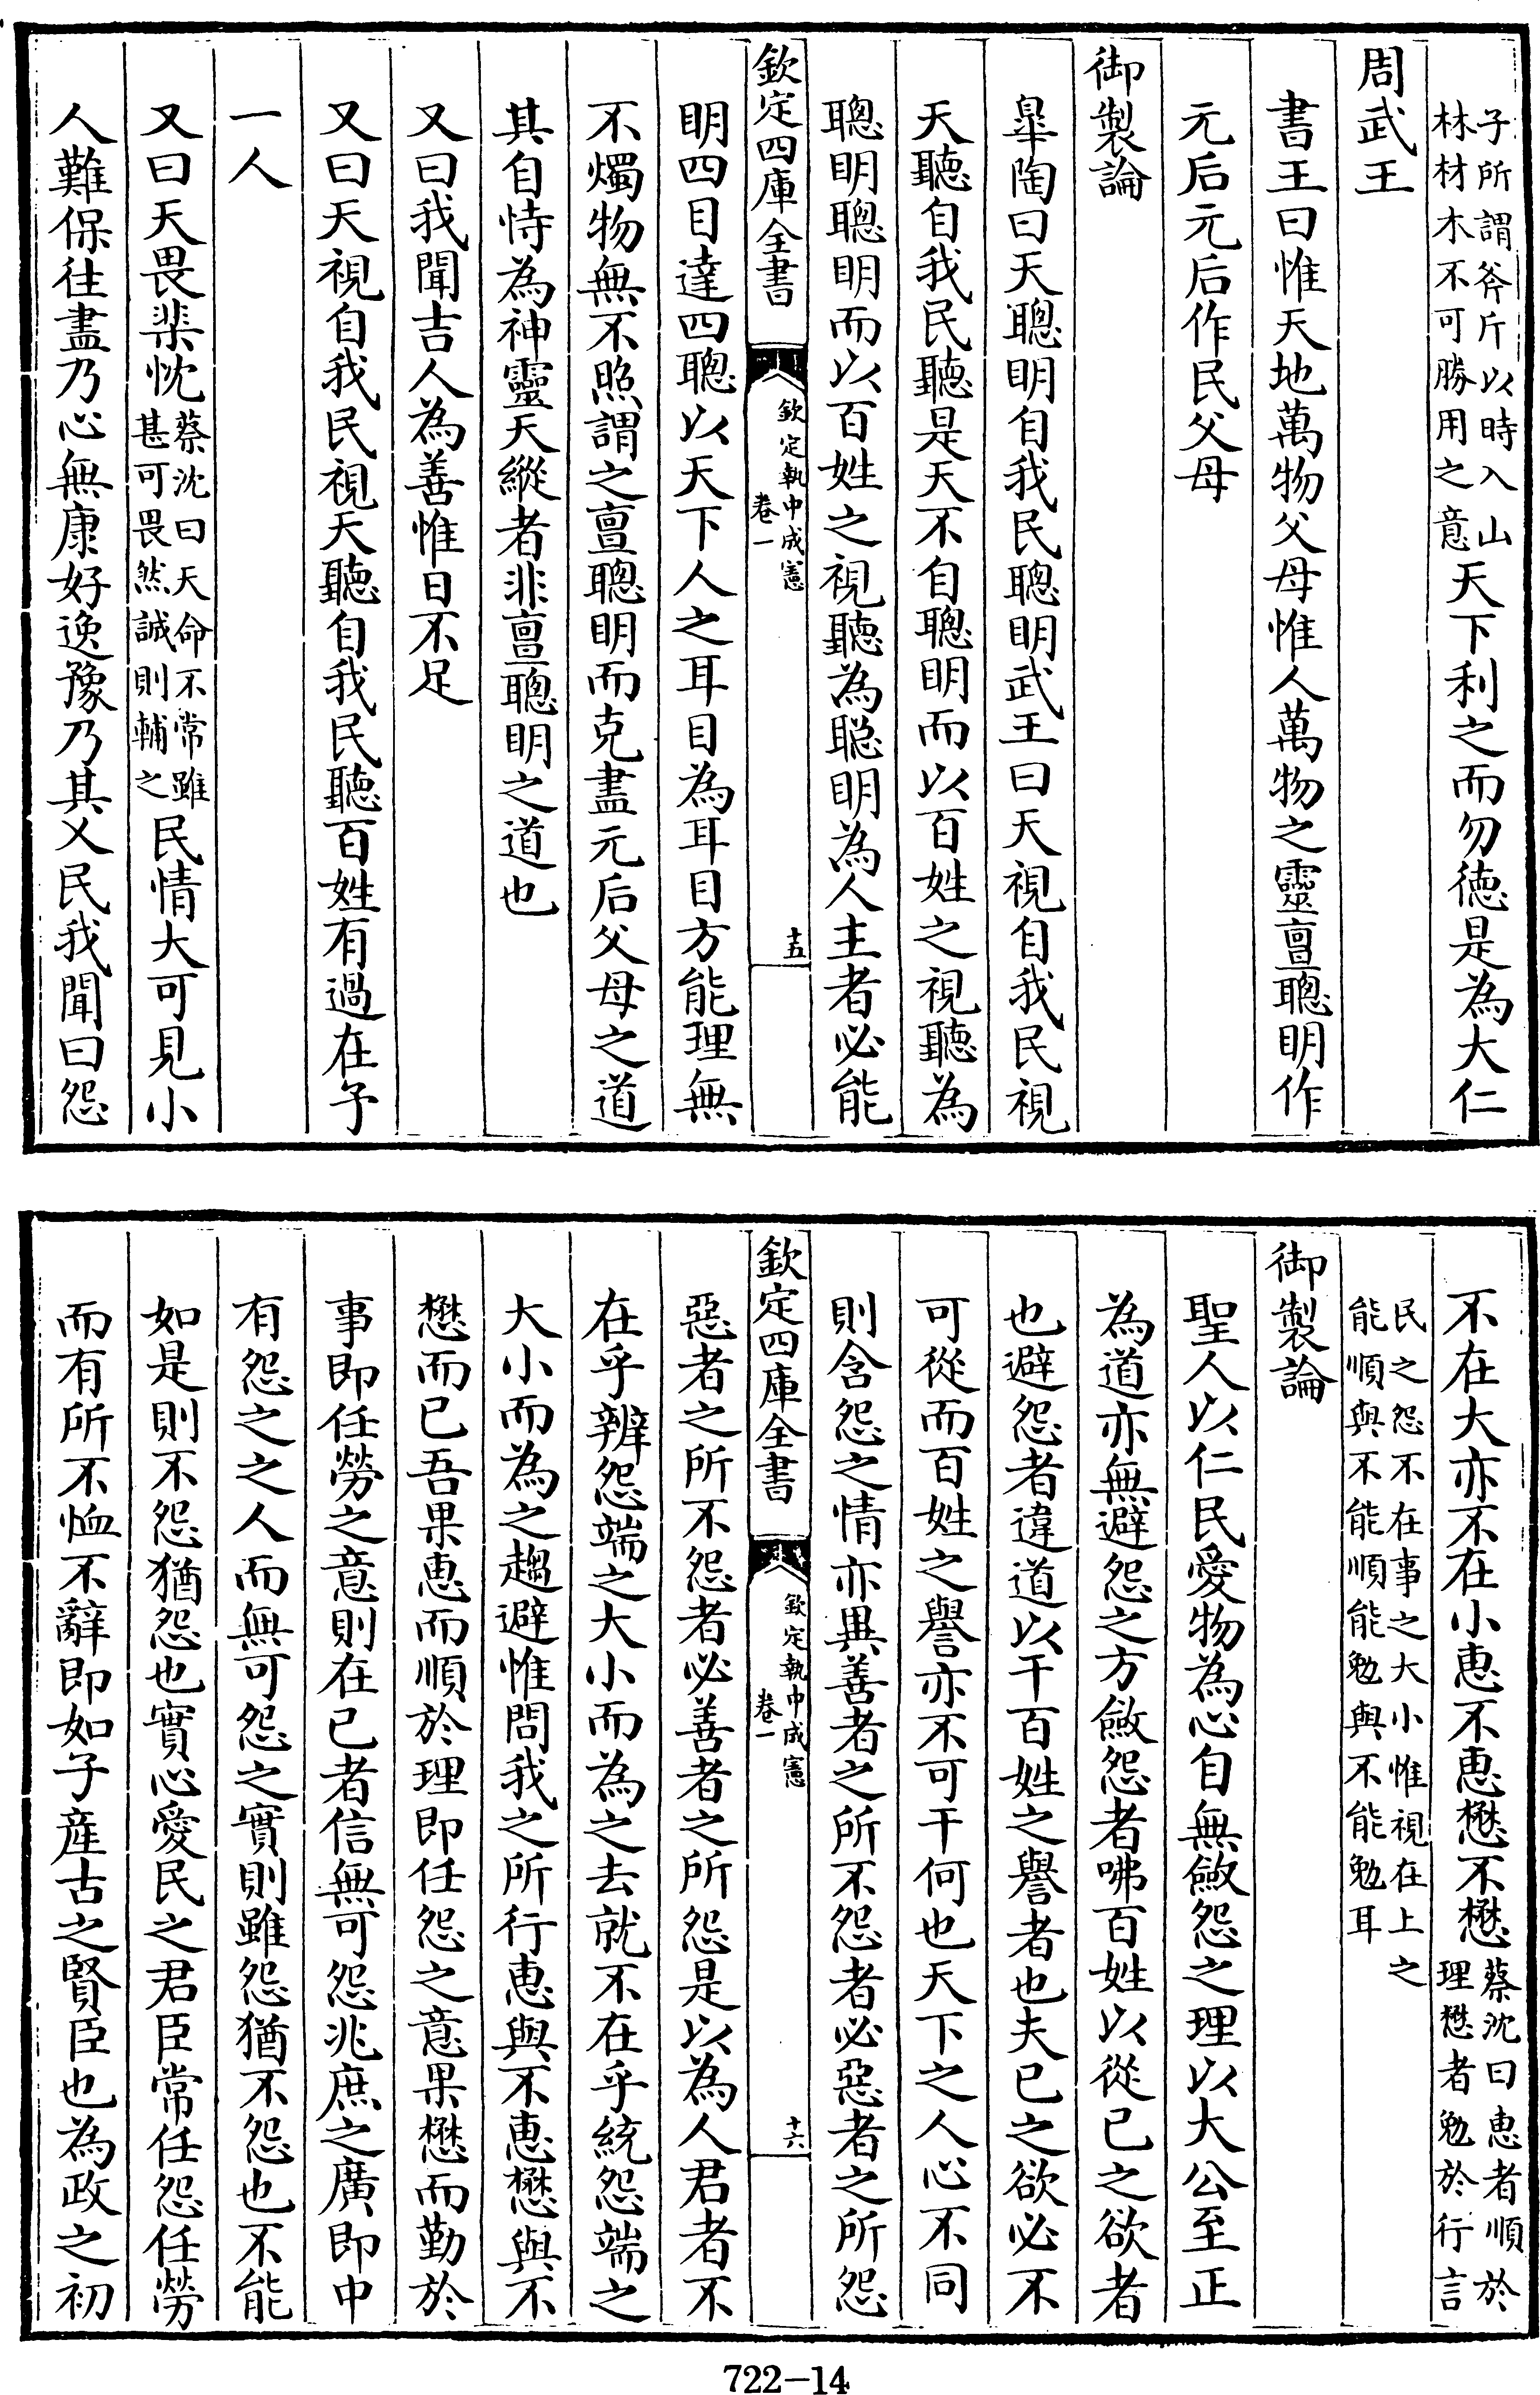 子所謂斧斤以時入山
林材木不可勝用之意
天下利之而勿徳是為大仁
周武王
書王曰惟天地萬物父母惟人萬物之靈亶聰明作
元后元后作民父母
御製論
臯陶曰天聰明自我民聰明武王曰天視自我民視
天聽自我民聽是天不自聰明而以百姓之視聽為
聰明聰明而以百姓之視聽為聡明為人主者必能
欽定四庫全書
欽定執中成憲
卷一
十五
明四目達四聰以天下人之耳目為耳目方能理無
不燭物無不照謂之亶聰明而克盡元后父母之道
其自恃為神靈天縱者非亶聰明之道也
又曰我聞吉人為善惟日不足
又曰天視自我民視天聽自我民聽百姓有過在予
一人
又曰天畏棐忱
蔡沈曰天命不常雖
甚可畏然誠則輔之
民情大可見小
人難保往盡乃心無康好逸豫乃其乂民我聞曰怨
不在大亦不在小恵不恵懋不懋
蔡沈曰恵者順於
理懋者勉於行言
民之怨不在事之大小惟視在上之
能順與不能順能勉與不能勉耳
御製論
聖人以仁民愛物為心自無斂怨之理以大公至正
為道亦無避怨之方斂怨者咈百姓以從已之欲者
也避怨者違道以干百姓之譽者也夫已之欲必不
可從而百姓之譽亦不可干何也天下之人心不同
則含怨之情亦異善者之所不怨者必惡者之所怨
欽定四庫全書
欽定執中成憲
卷一
十六
惡者之所不怨者必善者之所怨是以為人君者不
在乎辨怨端之大小而為之去就不在乎統怨端之
大小而為之趨避惟問我之所行恵與不恵懋與不
懋而已吾果恵而順於理即任怨之意果懋而勤於
事即任勞之意則在已者信無可怨兆庶之廣即中
有怨之之人而無可怨之實則雖怨猶不怨也不能
如是則不怨猶怨也實心愛民之君臣常任怨任勞
而有所不恤不辭即如子産古之賢臣也為政之初
722-14